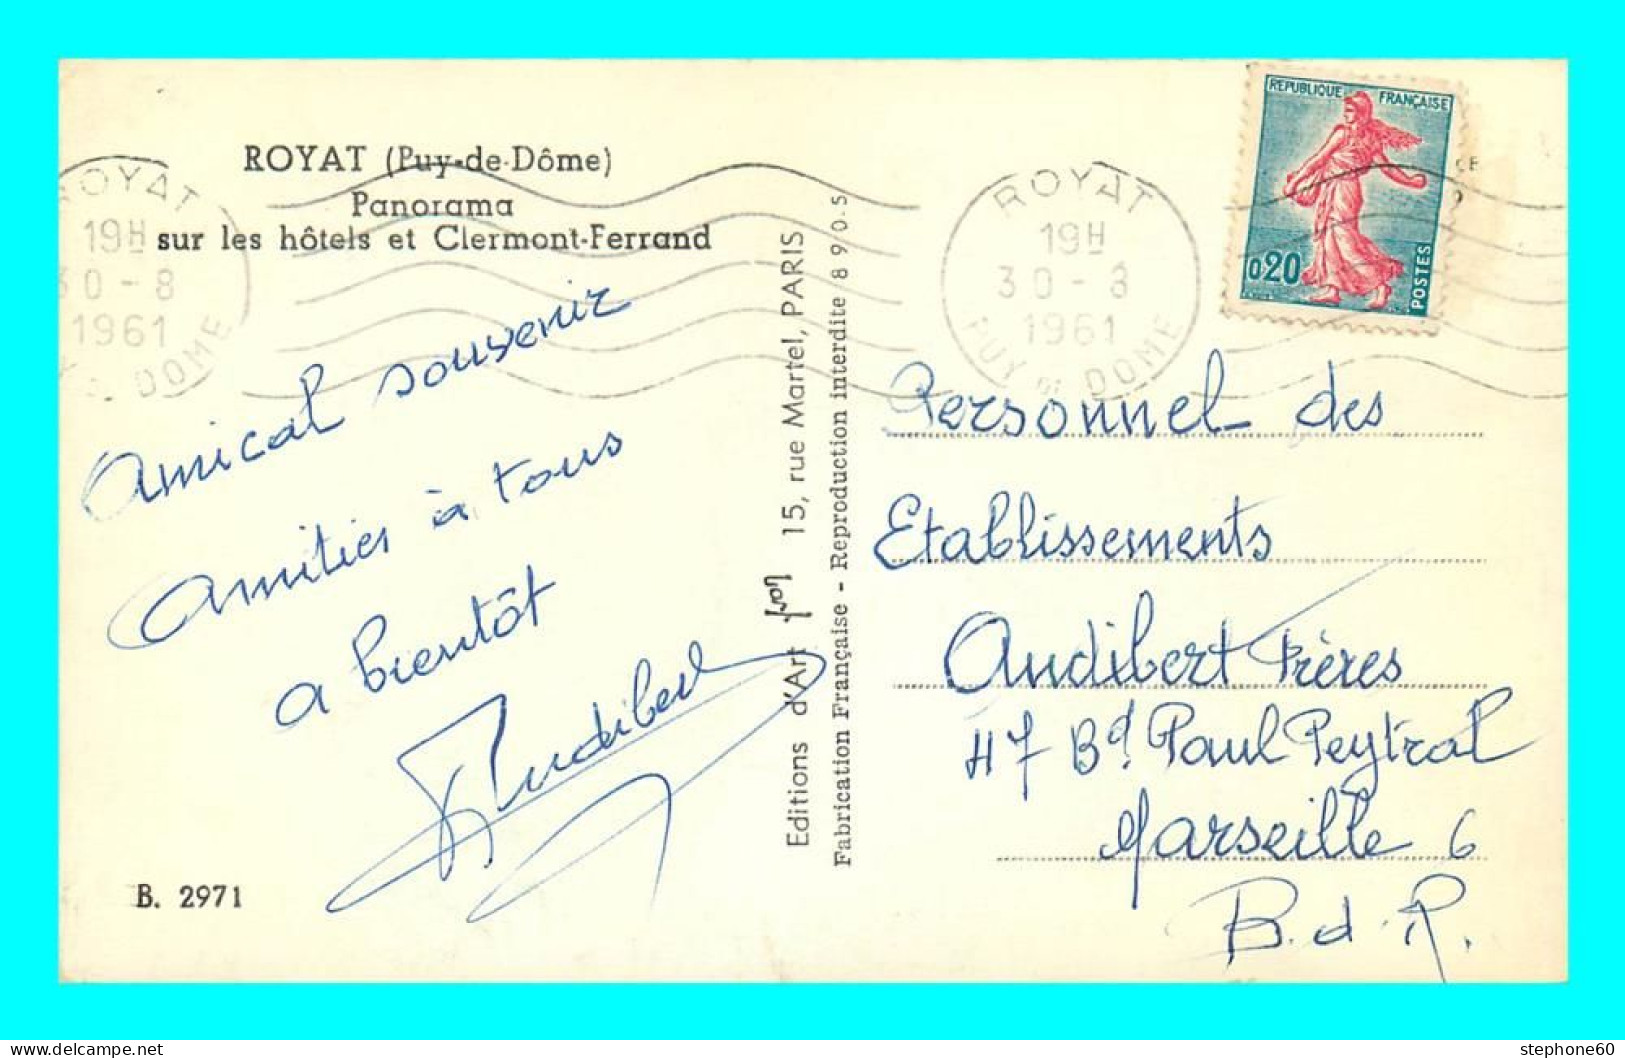 ROYAT (Puy-de-Dôme)
Panorama
sur les hôtels et Clermont-Ferrand
ROYAT
19H
30-8
1961
DOME
Amical souvenir
Amitiés à tous
a bientôt
Audibert
B. 2971
Editions d'Art Yvon 15, rue Martel, PARIS
Fabrication Française - Reproduction interdite 8 9 0-5
ROYAT
19H
30-8
1961
PUY DE DOME
REPUBLIQUE FRANÇAISE
0,20
POSTES
CE
Personnel des
Etablissements
Audibert Frères
47 Bd Paul Peytral
Marseille 6
B. d. R.
stephone60